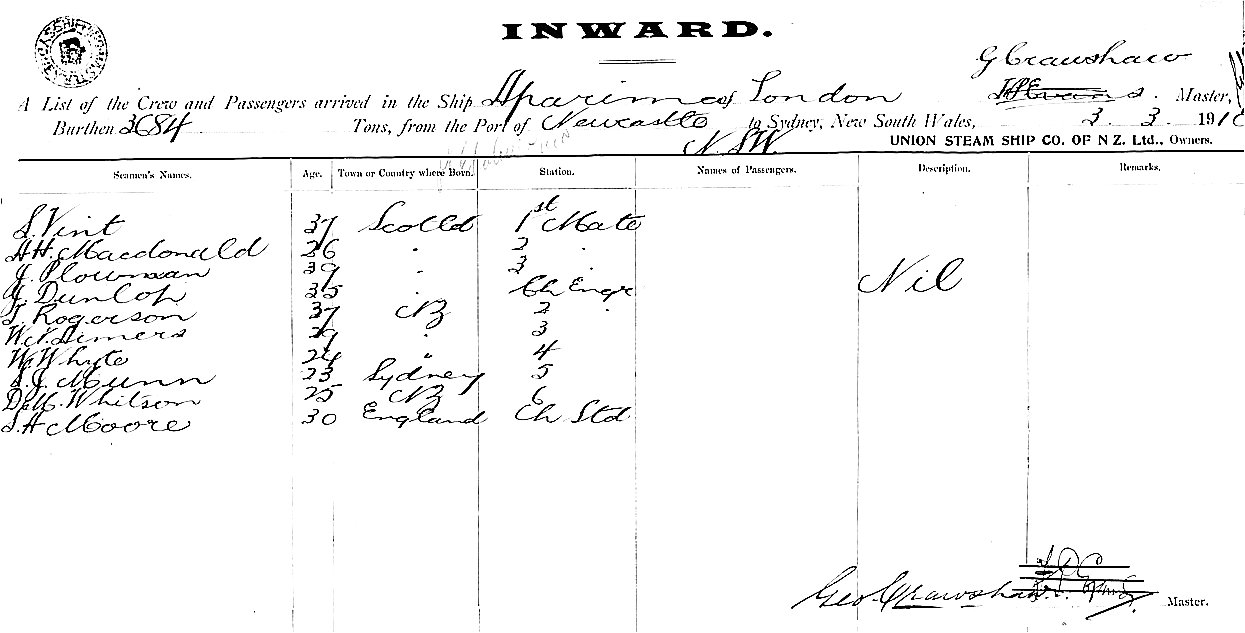 INWARD.
G Crawshaw
A List of the Crew and Passengers arrived in the Ship Aparima of London Master,
Burthen 3684 Tons, from the Port of Newcastle to Sydney, New South Wales, 3 . 3 191
NSW
UNION STEAM SHIP CO. OF N Z. Ltd., Owners.
Seamen's Names. Age. Town or Country where Born. Station. Names of Passengers. Description. Remarks.
S. Vint 37 Scotld 1st Mate
AH. Macdonald 26 " 2 "
J. Plowman 39 " 3 " Nil
J. Dunlop 35 " Ch Engr
T. Rogerson 37 NZ 2 "
29 " 3
W Whyte 24 " 4
S.J. Munn 23 Sydney 5
Whitson 25 NZ 6
S.H Moore 30 England Ch Std
Geo Crawshaw Master.